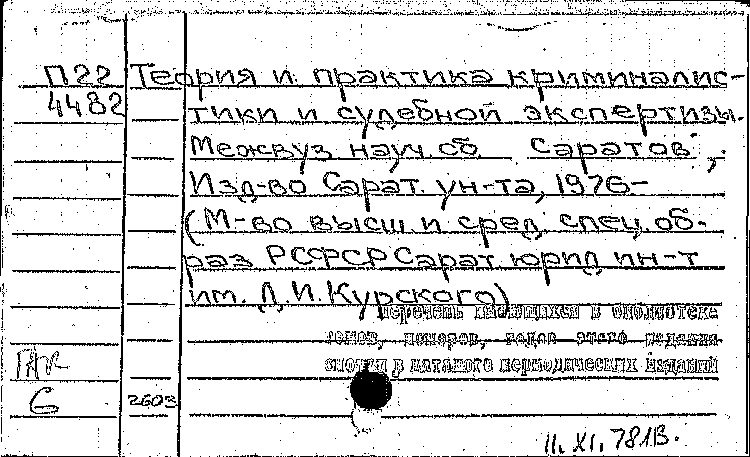 П22 Теория и практика криминалис-
4482 тики и судебной экспертизы.
Межвуз. науч. сб. Саратов,
Изд-во Сарат. ун-та, 1976-
(М-во высш. и сред. спец. об-
раз. РСФСР Сарат. юрид. ин-т
им. Д.И. Курского)
перечень имеющихся в библиотеке
томов, номеров, годов этого издания
смотри в каталоге периодических изданий
6 2603
11.XI.781В.